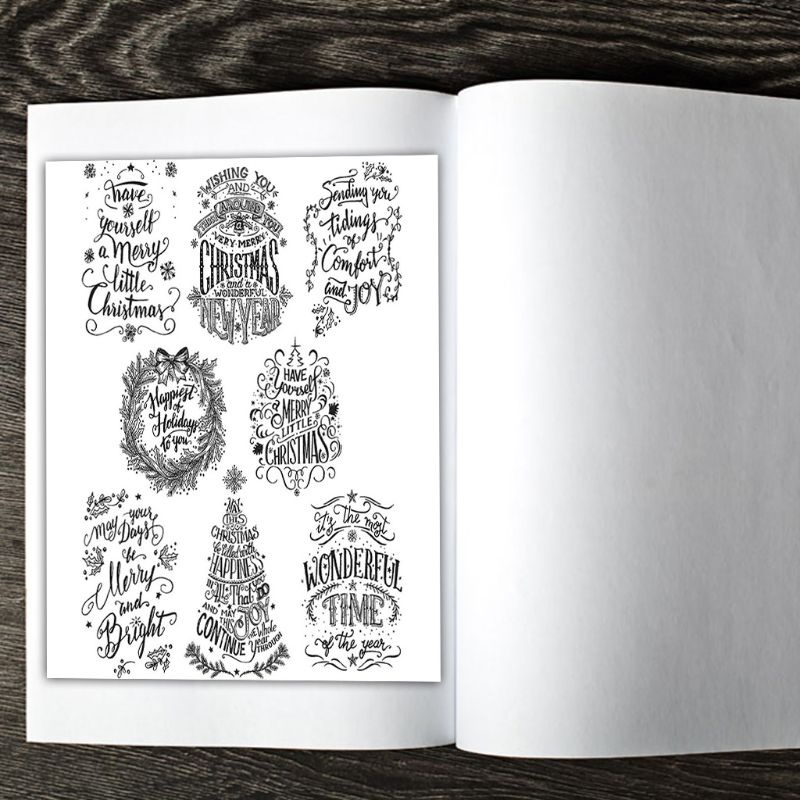 have
yourself
a Merry
little
Christmas
WISHING YOU
AND
THOSE AROUND YOU
A
VERY MERRY
CHRISTMAS
and a
WONDERFUL
NEW YEAR
Sending you
tidings
of
Comfort
and JOY
Happiest
of
Holidays
to you
HAVE
Yourself
A MERRY
LITTLE
CHRISTMAS
may your
Days
be
Merry
and
Bright
MAY
THIS
CHRISTMAS
be filled with
HAPPINESS
IN All That You DO
AND MAY
THIS JOY
CONTINUE the whole
year
THROUGH
it's the most
WONDERFUL
TIME
of the year